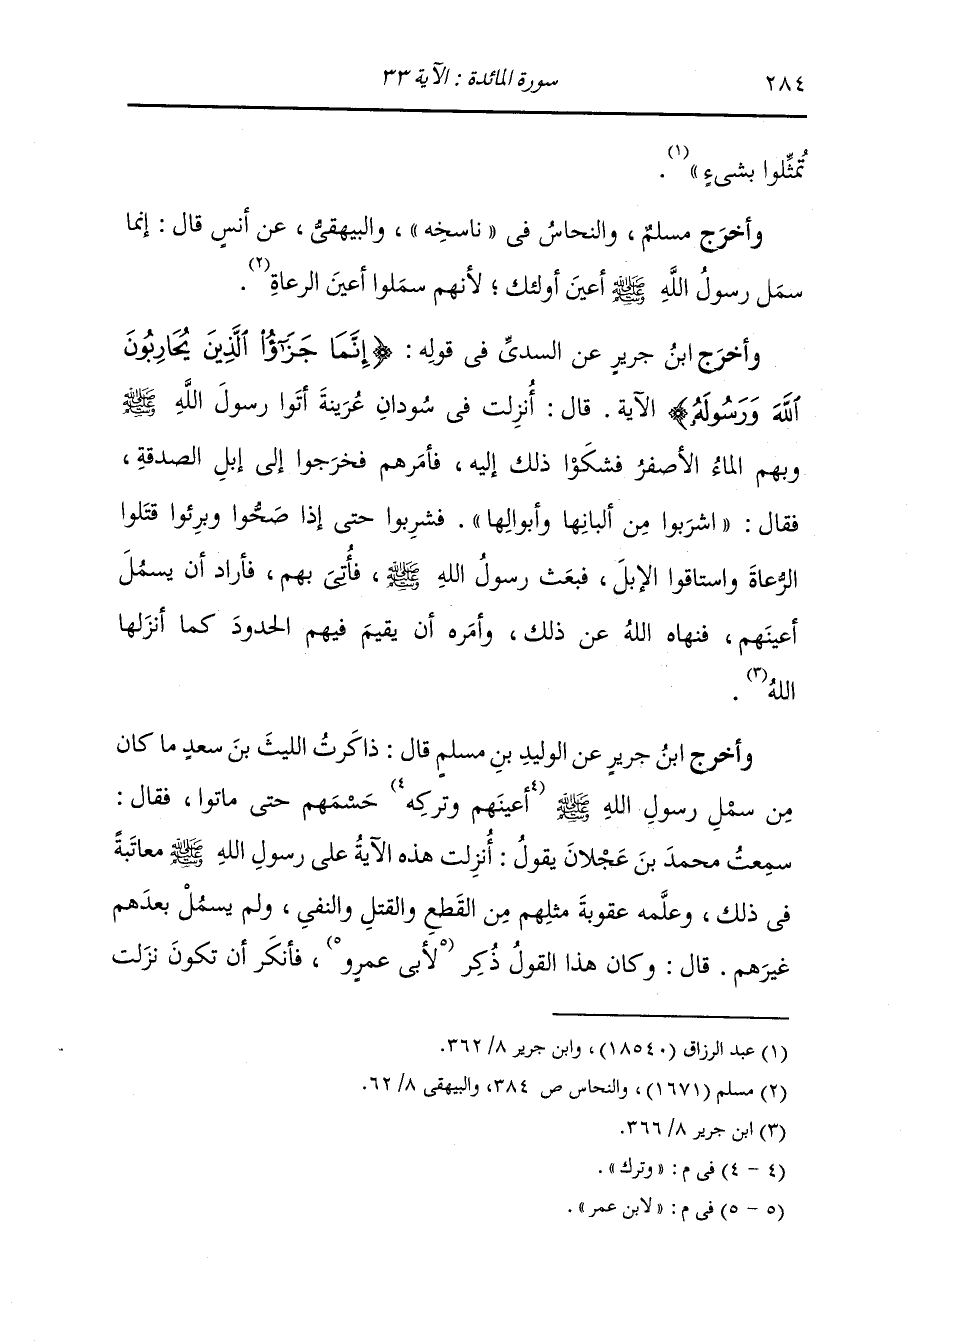 ٢٨٤ سورة المائدة : الآية ٣٣
تُمثِّلوا بشىءٍ »(١) .
وأخرَج مسلمٌ ، والنحاسُ فى « ناسخِه » ، والبيهقىُّ ، عن أنسٍ قال : إنما
سمَل رسولُ اللَّهِ ﷺ أعينَ أولئك ؛ لأنهم سمَلوا أعينَ الرعاةِ(٢) .
وأخرَج ابنُ جريرٍ عن السدىِّ فى قولِه : ﴿إِنَّمَا جَزَٰٓؤُاْ ٱلَّذِينَ يُحَارِبُونَ
ٱللَّهَ وَرَسُولَهُۥ﴾ الآية . قال : أُنزِلت فى سُودانِ عُرَينةَ أتَوا رسولَ اللَّهِ ﷺ
وبهم الماءُ الأصفرُ فشكَوْا ذلك إليه ، فأمَرهم فخرَجوا إلى إبلِ الصدقةِ ،
فقال : « اشرَبوا مِن ألبانِها وأبوالِها » . فشرِبوا حتى إذا صَحُّوا وبرِئوا قتَلوا
الرُّعاةَ واستاقوا الإبلَ ، فبعَث رسولُ اللهِ ﷺ ، فأُتِىَ بهم ، فأراد أن يسمُلَ
أعينَهم ، فنهاه اللهُ عن ذلك ، وأمَره أن يقيمَ فيهم الحدودَ كما أنزَلها
اللهُ(٣) .
وأخرج ابنُ جريرٍ عن الوليدِ بنِ مسلمٍ قال : ذاكَرتُ الليثَ بنَ سعدٍ ما كان
مِن سمْلِ رسولِ اللهِ ﷺ (٤أعينَهم وتركِه٤) حَسْمَهم حتى ماتوا ، فقال :
سمِعتُ محمدَ بنَ عَجْلانَ يقولُ : أُنزِلت هذه الآيةُ على رسولِ اللهِ ﷺ معاتَبةً
فى ذلك ، وعلَّمه عقوبةَ مثلِهم مِن القَطعِ والقتلِ والنفىِ ، ولم يسمُلْ بعدَهم
غيرَهم . قال : وكان هذا القولُ ذُكِر (٥لأبى عمرٍو٥) ، فأنكَر أن تكونَ نزَلت
(١) عبد الرزاق (١٨٥٤٠) ، وابن جرير ٨/ ٣٦٢.
(٢) مسلم (١٦٧١) ، والنحاس ص ٣٨٤، والبيهقى ٨/ ٦٢.
(٣) ابن جرير ٨/ ٣٦٦.
(٤ - ٤) فى م : « وترك » .
(٥ - ٥) فى م : « لابن عمر » .